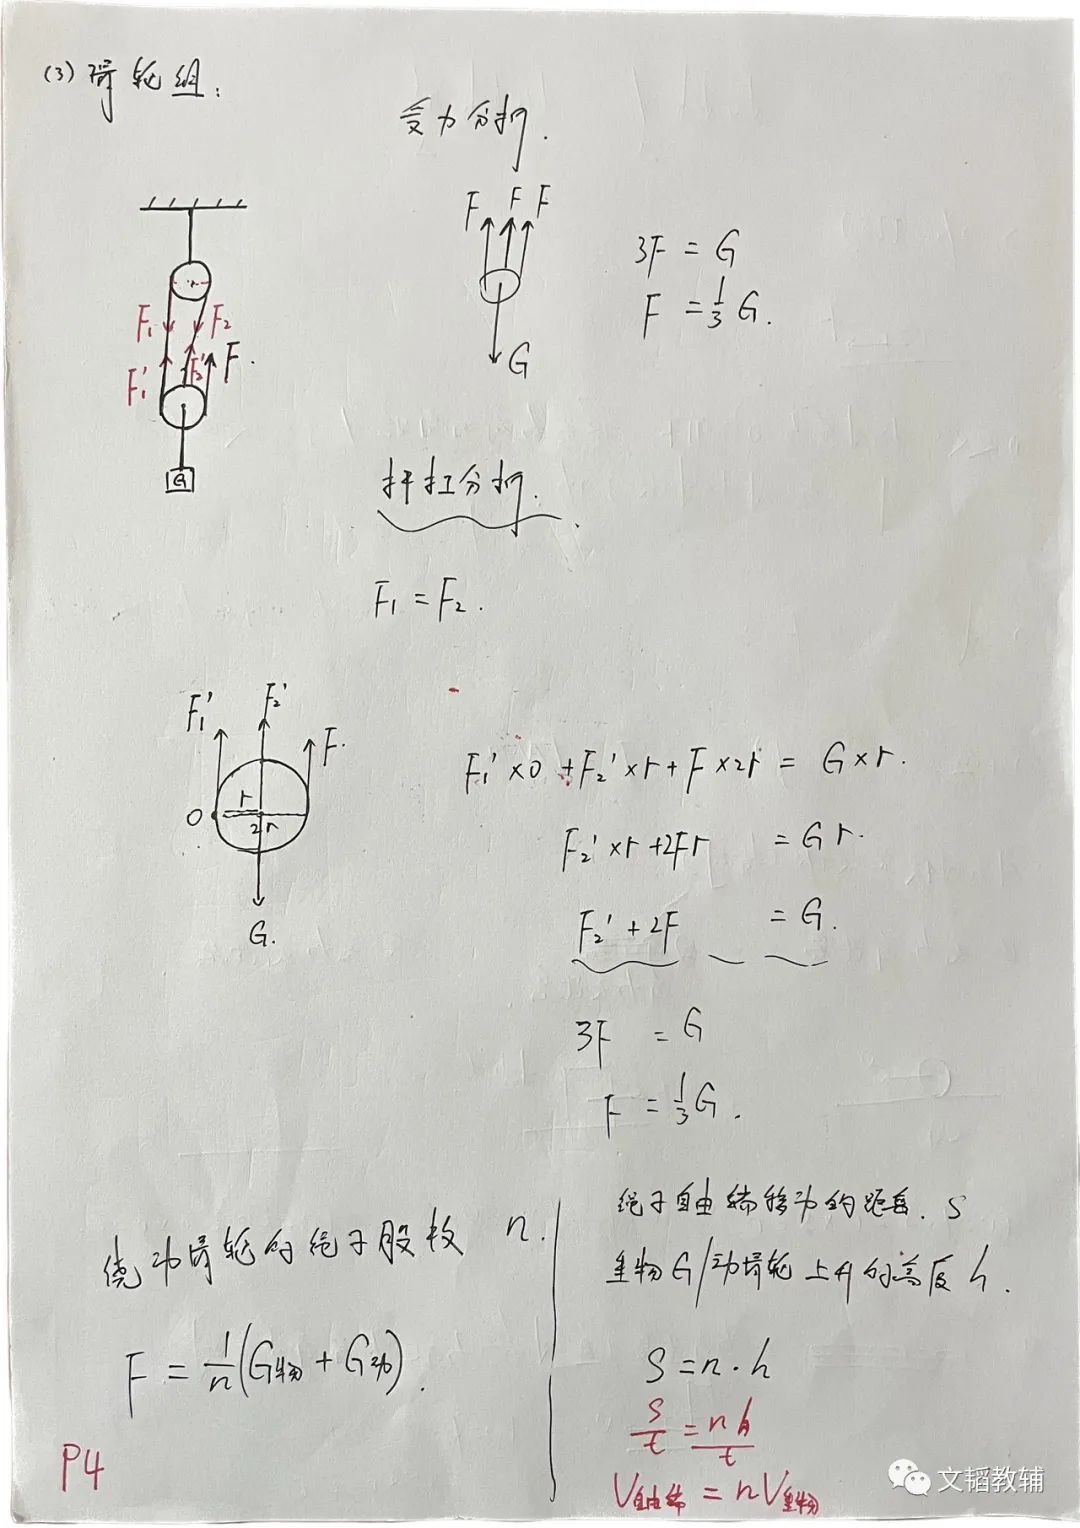 (3) 滑轮组:
受力分析.
F F F
3F = G
F = 1/3 G.
G
F₁ F₂
F₁' F₂' F.
G
杠杆分析.
F₁ = F₂.
F₁' F₂' F.
O r 2r
G.
F₁'×0 + F₂'×r + F×2r = G×r.
F₂'×r + 2Fr = Gr.
F₂' + 2F = G.
3F = G
F = 1/3 G.
绕动滑轮的绳子股数 n.
F = 1/n (G物 + G动).
绳子自由端移动的距离. S
重物G/动滑轮上升的高度 h.
S = n·h
S/t = nh/t
V自由端 = nV重物
P4
文韬教辅